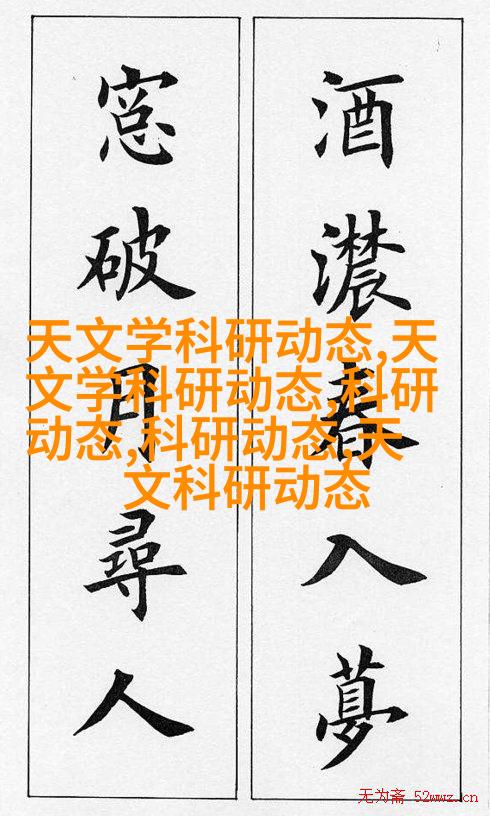 酒濃春入夢
窓破月尋人
天文学科研动态,天
文学科研动态,科研
动态,科研动态,天
文科研动态
无为斋 52wwz.cn